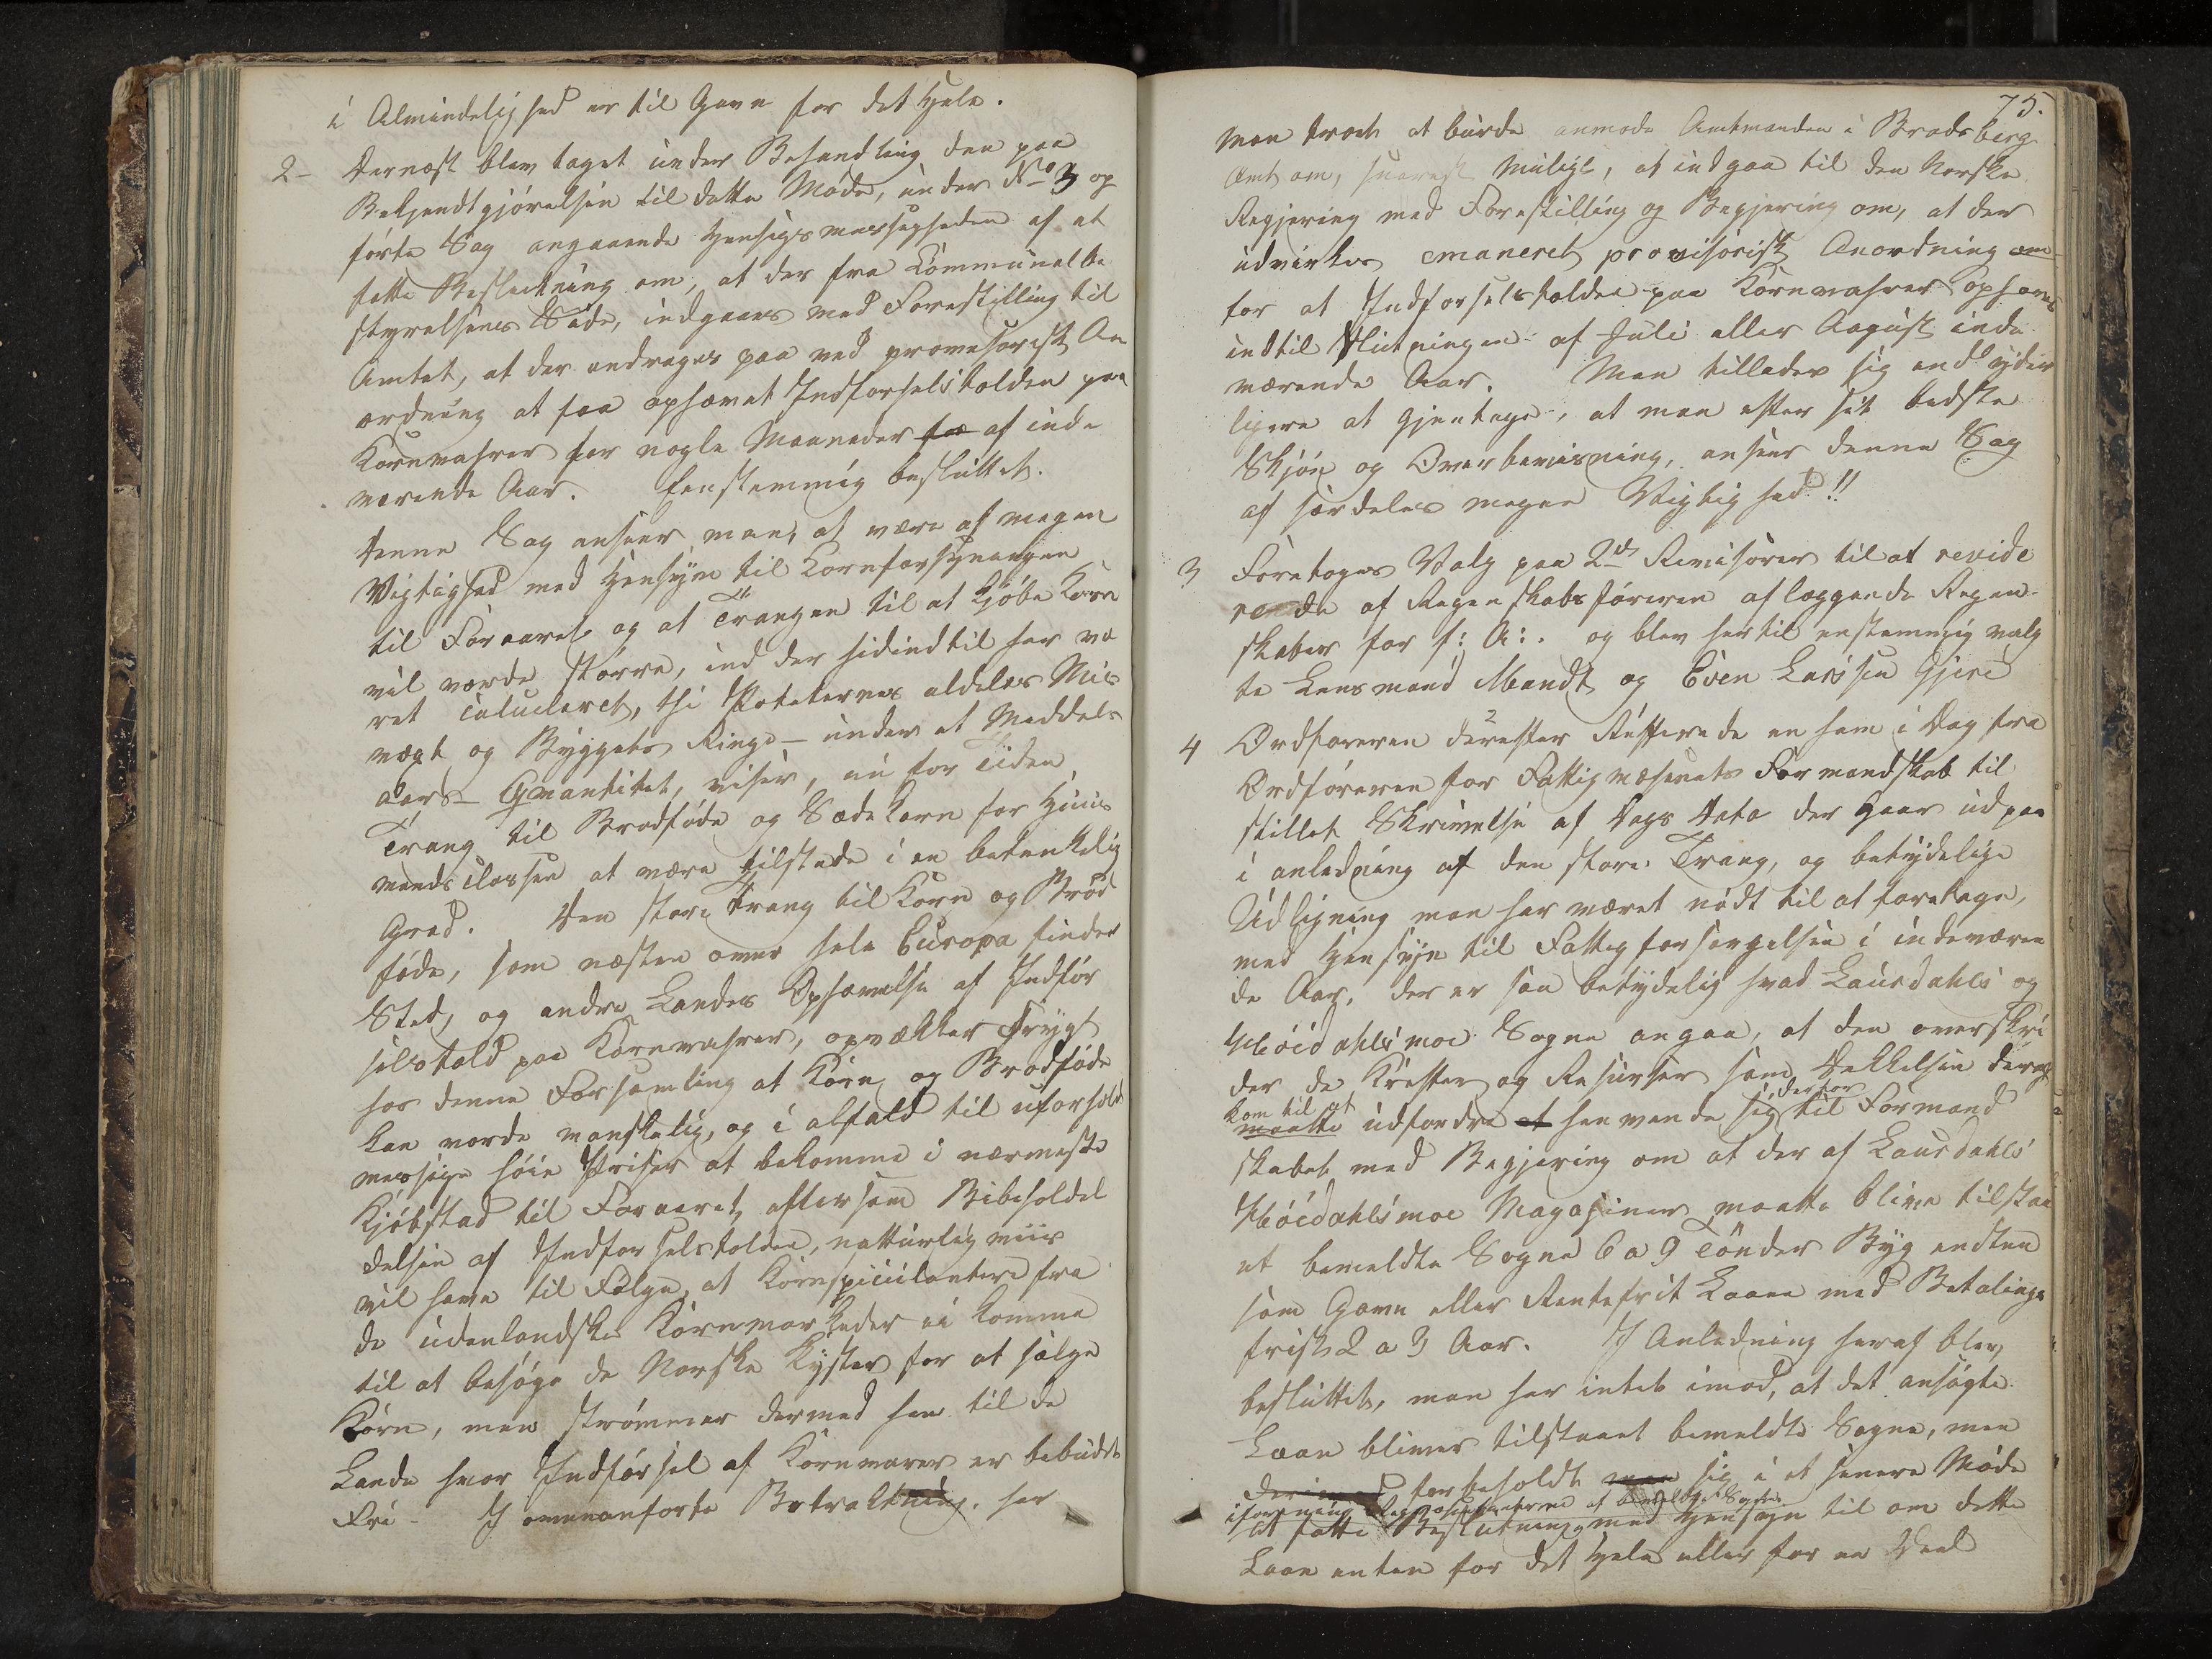 i Almindelighed er til Gavn for det Hele.
2- Dernæst blev taget under Behandling den paa
Bekjendtgjörelsen til dette Möde, under No 3 op
förte Sag angaaende Hensigtsmessigheden af at
fatte Beslutning om, at der fra Communalbe
styrelsens Side, indgaaes med Forestilling til
Amtet, at der andrages paa ved provisorisk An
ordning at faa ophævet Indförselstolden paa
Kornvahrer for nogle Maaneder af inde
værende Aar. Eenstemmig besluttet.
Denne Sag anseer man, at være af megen
Vigtighed med Hensyn til Kornforsyningen
til Foraaret og at Trangen til at kjöbe Korn
vil vorde större, end der hidindtil har væ
ret calculeret, thi Poteternes aldeles Mis
vægt og Byggets Ringe - under et Middels
aars- Qvantitet, viser, nu for Tiden
Trang til Brödföde og Sædekorn for Huus
mandsclassen at være tilstede i en betænkelig
Grad. Den store Trang til Korn og Bröd
föde, som næsten over hele Europa finder
Sted, og andre Landes Ophævelse af Indför
selstold paa Kornvahrer, opvækker Frygt
hos denne Forsamling at Korn og Brödföde
kan vorde vanskelig, og i alfald til uforholds
messige höie Priser at bekomme i nærmeste
Kjöbstad til Foraaret, eftersom Bibeholdel
delsen af Indförselstolden, natturligviis
vil have til Fölge, at Kornspeculantere fra
de udenlandske Kornmarkeder ei komme
til at besöge de Norske Kyster for at sælge
Korn, men strömmer dermed hen til de
Lande hvor Indförsel af Kornvarer er bebudet
Fri - I ovenanförte Betraktning, har
75.
man troet at burde anmode Amtmanden i Bradsberg
Amt om, snarest muligt, at indgaa til den Norske
Regjering med Forestilling og Begjering om, at der
udvirkes emaneret provisorisk Anordning om
for at Indförselstolden paa Kornvahrer ophæves
indtil Slutningen af Juli eller August inde
værende Aar. Man tillader sig end yder
ligere at gjentage, at man efter sit bedste
Skjön og Overbeviisning, anseer denne Sag
af særdeles megen Vigtighed!!
3 Foretoges Valg paa 2de Revisorer til at revide
rende af Regenskabsföreren aflæggende Regen-
skaber for f: A:. og blev hertil enstemmig valg
te Lensmand Mandt og Even Larssen Gjere
4 Ordföreren derefter Refferede en ham i Dag fra
Ordföreren for Fattigvæsenets Formandskab til
stillet Skrivelse af Dags Dato der gaar ud paa
i anledning af den store Trang, og betydelige
Udligning man har været nödt til at foretage,
med Hensyn til Fattigforsörgelsen i indeværen
de Aar, der er saa betydelig hvad Laurdahls og
Höidahlsmoe Sogne angaa, at den overskri
der de Kræfter og Resurser som Dekkelsen deraf
kom til at
maatte udfordre at henvende sig derfor til Formand
skabet med Begjering om at der af Laurdahls
Höidahlsmoe Magasiner maatte blive tilstaa
et bemeldte Sogne 6 a 9 Tönder Byg endten
som Gave eller Rentefrit Laan med Betalings
frist 2 a 3 Aar. I Anledning heraf blev
besluttet, man har intet imod, at det ansögte
Laan bliver tilstaaet bemeldte Sogne, men
forbeholdt man sig i et senere Möde
at fatte Beslutning med Hensyn til om dette
Laan enten for det Hele eller for en Deel